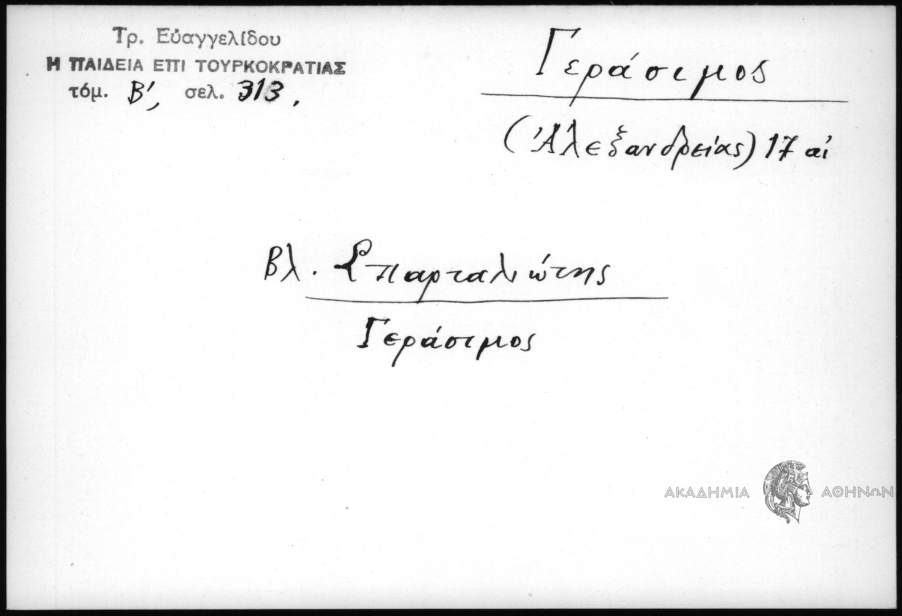 Τρ. Εὐαγγελίδου
Η ΠΑΙΔΕΙΑ ΕΠΙ ΤΟΥΡΚΟΚΡΑΤΙΑΣ
τόμ. Β΄, σελ. 313.
Γεράσιμος
(Ἀλεξανδρείας) 17 αἰ
Βλ. Σπαρταλιώτης
Γεράσιμος
ΑΚΑΔΗΜΙΑ ΑΘΗΝΩΝ